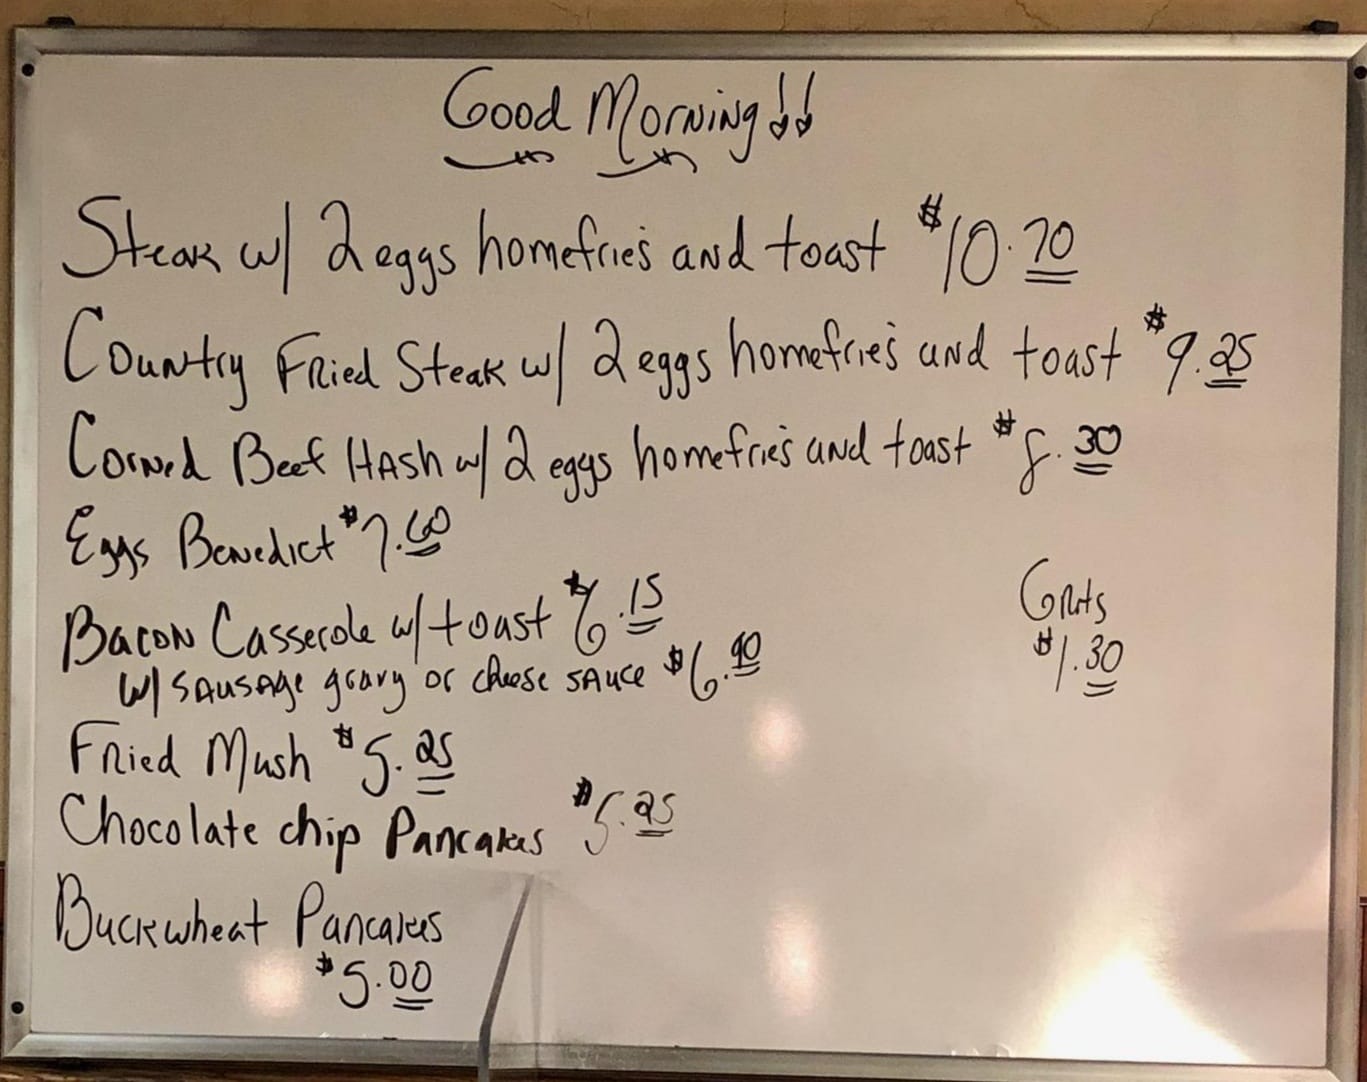 Good Morning!!
Steak w/ 2 eggs homefrie's and toast $10.70
Country Fried Steak w/ 2 eggs homefrie's and toast $9.25
Corned Beef Hash w/ 2 eggs homefrie's and toast $8.30
Eggs Benedict $7.60
Bacon Casserole w/ toast $6.15
w/ sausage gravy or cheese sauce $6.90
Grits
$1.30
Fried Mush $5.25
Chocolate chip Pancakes $5.25
Buckwheat Pancakes
$5.00